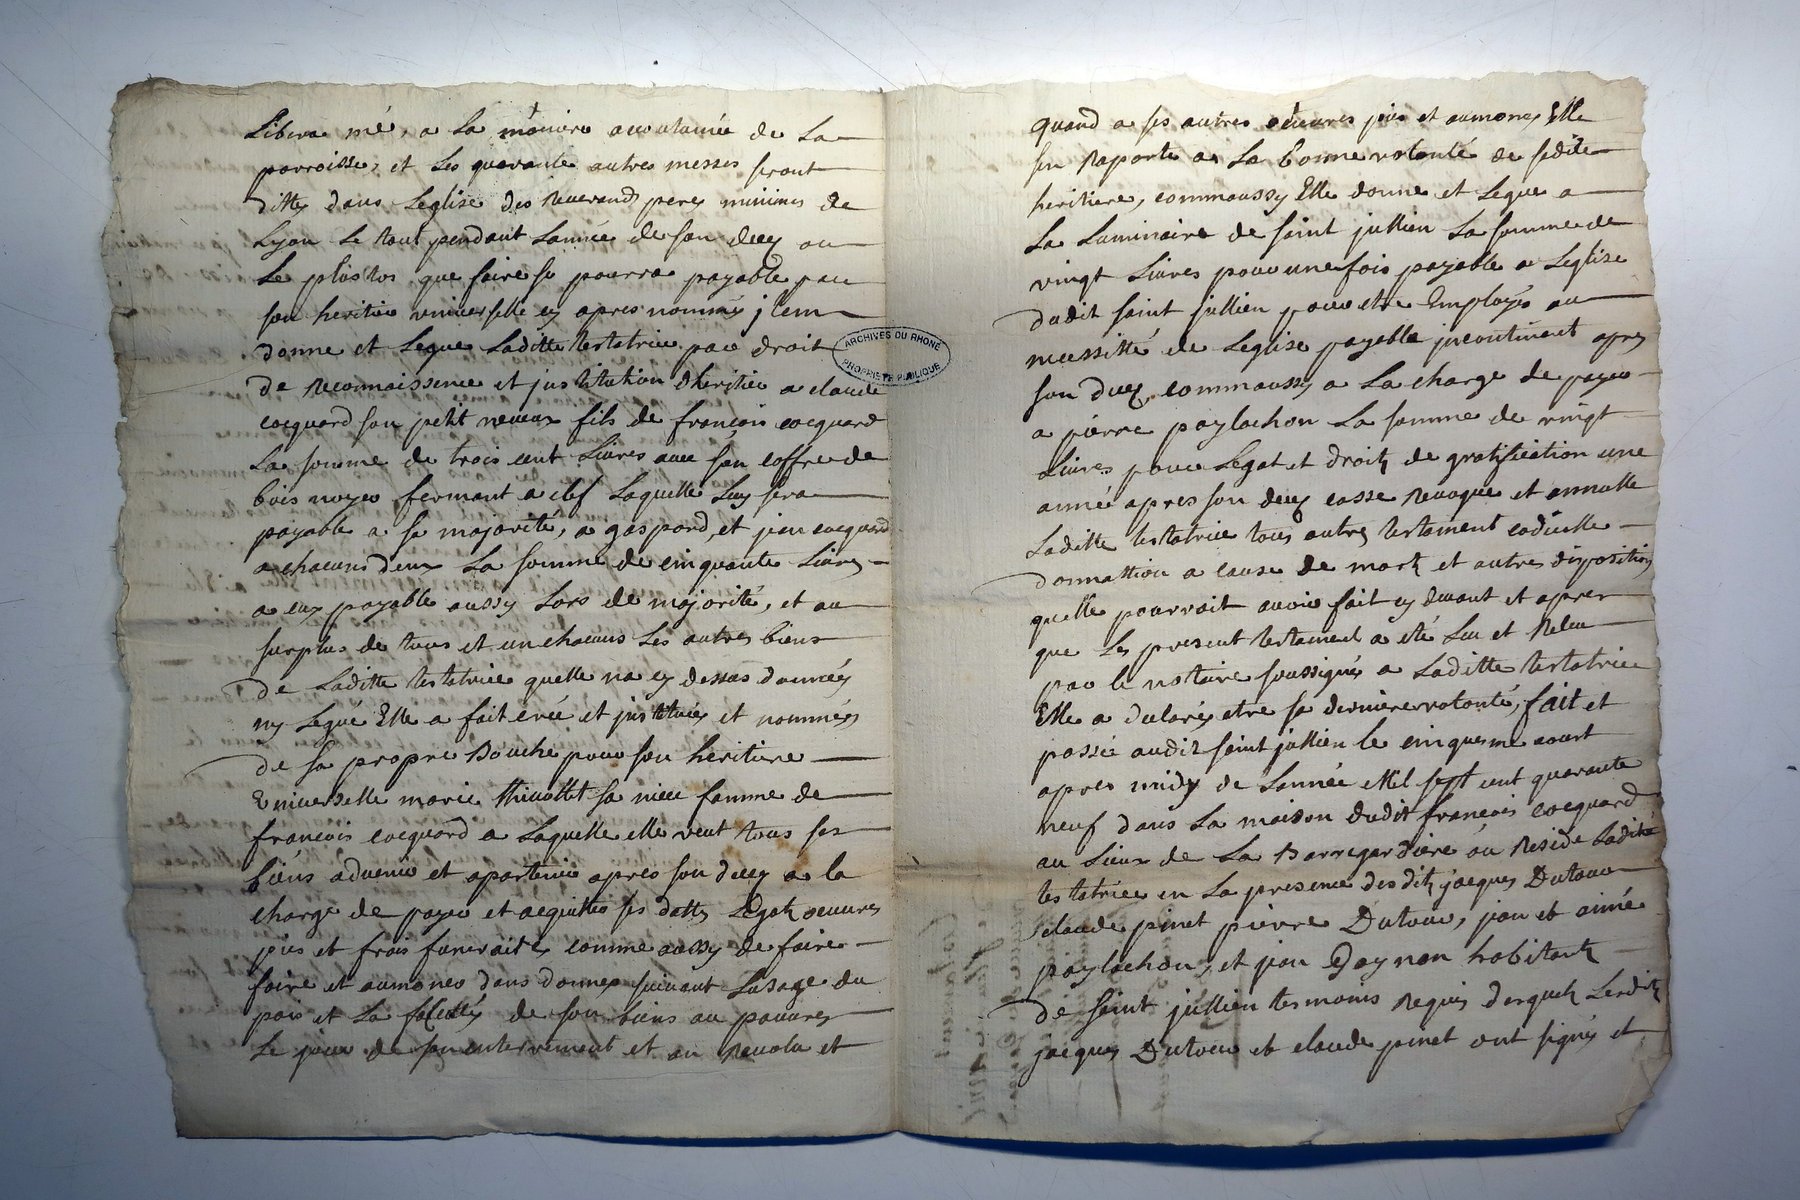 Libera mé, a la maniere acoutumée de la
parroisse, et les quarante autres messes seront
dittes dans Leglise des Reverends peres minimes de
Lyon le tout pendant Lannée de son decez ou
le plustos que faire se pourra payable par
son heritiere universelle cy apres nommée jtem
donne et Legue Laditte testatrice par droit
de reconnaissence et jnstitution dheritier a claude
cocquard son petit neveux fils de francois cocquard
La somme de trois cent Livres avec son coffre de
bois noyer fermant a clef Laquelle Luy sera
payable a sa majorité, a gaspard, et jean cocquard
a chacuns deux La somme de cinquante Livres
a eux payable aussy Lors de majorité, et au
surplus de tous et un chacuns Les autres biens
de Laditte testatrice quelle na cy dessus donnés
ny Legué Elle a fait créé et jnstituée et nommées
de sa propre Bouche pour son heritiere
Universelle marie thivollet sa niece famme de
francois cocquard a Laquelle elle veut tous ses
biens advenir et apartenir apres son decez a la
charge de payer et acquitter ses dettes Legats oeuvres
pies et frais funeraires comme aussy de faire
faire et aumones dans donnes suivant Lusage du
pais et La facultés de son biens au pauvres
Le jour de son enterrement et au revolu et
ARCHIVES DU RHONE
PROPRIETE PUBLIQUE
quand a ses autres oeuvres pies et aumones Elle
sen raporte a La bonne volonté de sedite
heritiere, commaussy Elle donne et Legue a
La Luminaire de saint jullien La somme de
vingt Livres pour une fois payable a Leglise
dudit saint jullien pour etre Employés au
necessitté de Leglise payable jncontinent apres
son decez, commaussy a La charge de payer
a pierre paylachon La somme de vingt
Livres pour Legat et droit de gratification une
année apres son decez casse revoque et annulle
Laditte testatrice tous autres testament codicille
donnattion a cause de mort et autres disposition
quelle pourroit avoir fait cy devant et apres
que Le present testament a eté Lu et Relu
par le notaire soussignés a Laditte testatrice
Elle a declarés etre sa derniere volonté, fait et
passé audit saint jullien le cinquesme aoust
apres midy de Lannée Mil sept cent quarante
neuf dans La maison dudit francois cocquard
au Lieux de La Barregardiere ou Reside Ladite
testatrice en La presence desdits jacques Dutour
claude pinet pierre Dutour, jean et aimé
paylachon, et jean Gaynon habitants
de saint jullien tesmoins requis desquels Lesdits
jacques Dutour et claude pinet ont signés et